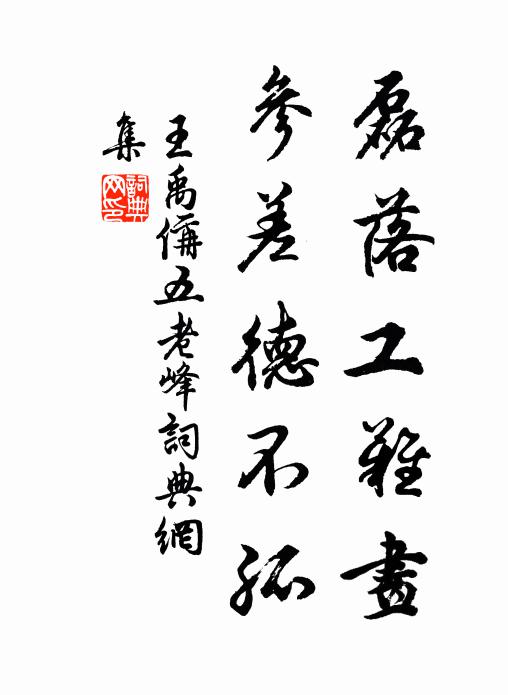 磊落工難畫
參差德不孤
王禹偁五老峰詞典網
集
詞典
网印